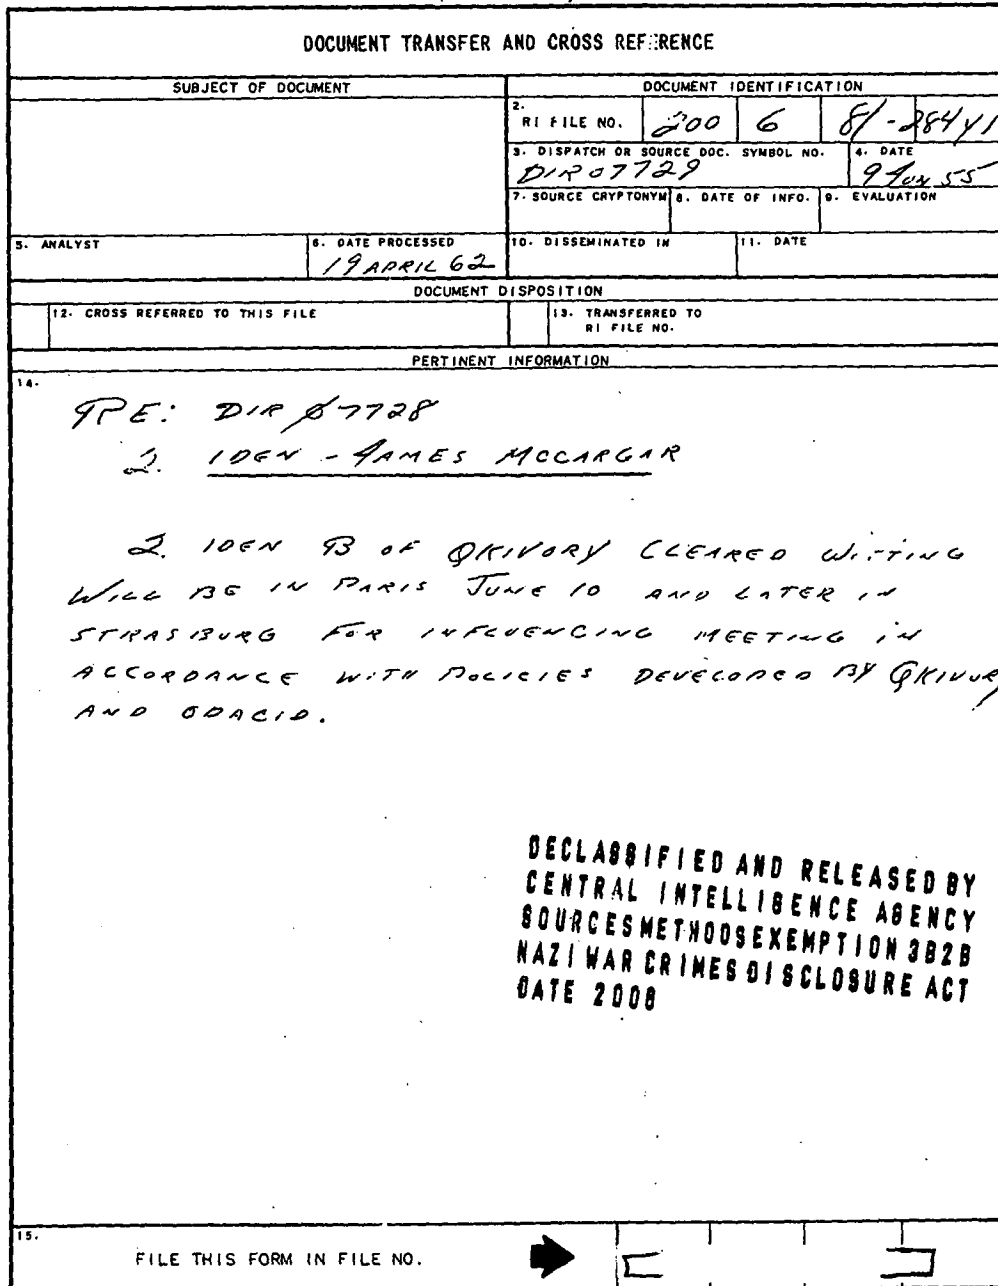 DOCUMENT TRANSFER AND CROSS REFERENCE
SUBJECT OF DOCUMENT
DOCUMENT IDENTIFICATION
2. RI FILE NO. 200 6 81-284Y1
3. DISPATCH OR SOURCE DOC. SYMBOL NO. DIR 07729
4. DATE 9 JUN 55
7. SOURCE CRYPTONYM 8. DATE OF INFO. 9. EVALUATION
5. ANALYST
6. DATE PROCESSED 19 APRIL 62
10. DISSEMINATED IN 11. DATE
DOCUMENT DISPOSITION
12. CROSS REFERRED TO THIS FILE
13. TRANSFERRED TO
RI FILE NO.
PERTINENT INFORMATION
14.
RE: DIR Ø7728
2. IDEN - JAMES MCCARGAR
2. IDEN B OF QKIVORY CLEARED WITTING
WILL BE IN PARIS JUNE 10 AND LATER IN
STRASBURG FOR INFLUENCING MEETING IN
ACCORDANCE WITH POLICIES DEVELOPED BY QKIVORY
AND ODACID.
DECLASSIFIED AND RELEASED BY
CENTRAL INTELLIGENCE AGENCY
SOURCESMETHODSEXEMPTION 3B2B
NAZI WAR CRIMES DISCLOSURE ACT
DATE 2008
15.
FILE THIS FORM IN FILE NO.